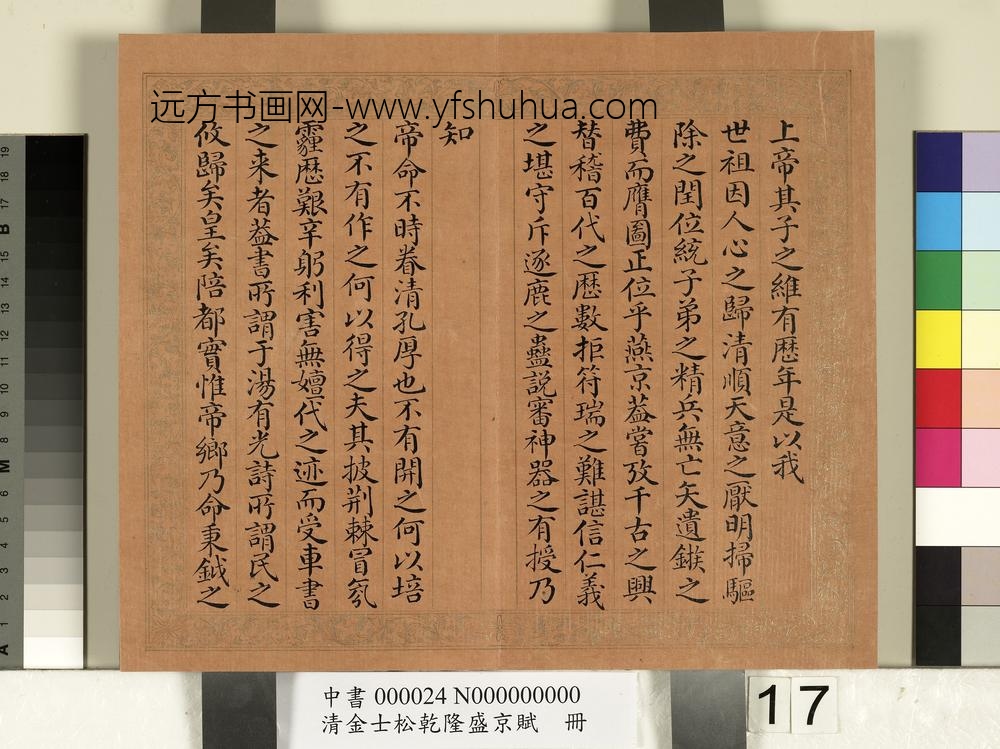 远方书画网-www.yfshuhua.com
上帝其子之維有歴年是以我
世祖因人心之歸清順天意之厭明掃驅
除之閏位統子弟之精兵無亡矢遺鏃之
費而膺圖正位乎燕京葢嘗攷千古之興
替稽百代之歴數拒符瑞之難諶信仁義
之堪守斥逐鹿之蠱説審神器之有授乃
知
帝命不時眷清孔厚也不有開之何以培
之不有作之何以得之夫其披荆棘冒氛
霾歴艱辛躬利害無嬗代之迹而受車書
之来者葢書所謂于湯有光詩所謂民之
攸歸矣皇矣陪都實惟帝鄉乃命秉鉞之
中書 000024 N000000000
清金士松乾隆盛京賦 冊
17
A 1 2 3 4 5 6 M 8 9 10 11 12 13 14 15 B 17 18 19